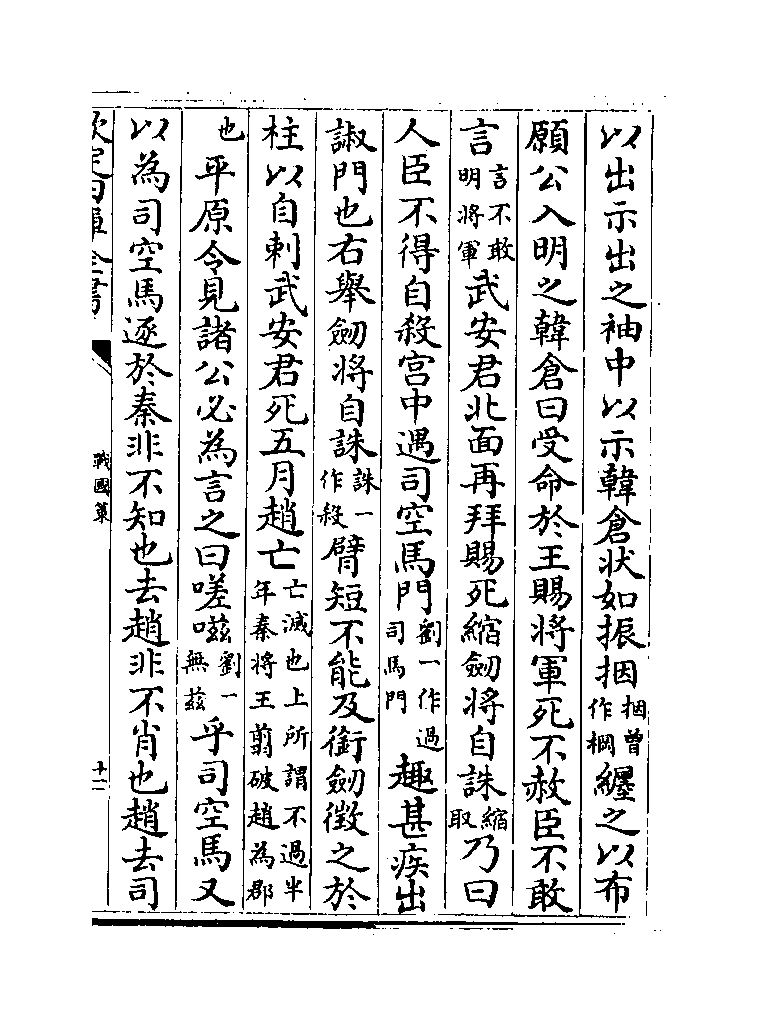 以出示出之袖中以示韓倉狀如振捆捆曾作梱纒之以布
願公入明之韓倉曰受命於王賜將軍死不赦臣不敢
言言不敢明將軍武安君北面再拜賜死縮劒將自誅縮取乃曰
人臣不得自殺宫中遇司空馬門劉一作過司馬門趣甚疾出
諔門也右舉劒將自誅誅一作殺臂短不能及銜劒徴之於
柱以自刺武安君死五月趙亡亡滅也上所謂不過半年秦將王翦破趙為郡
也平原令見諸公必為言之曰嗟嗞劉一無茲乎司空馬又
以為司空馬逐於秦非不知也去趙非不肖也趙去司
欽定四庫全書
戰國策
十二